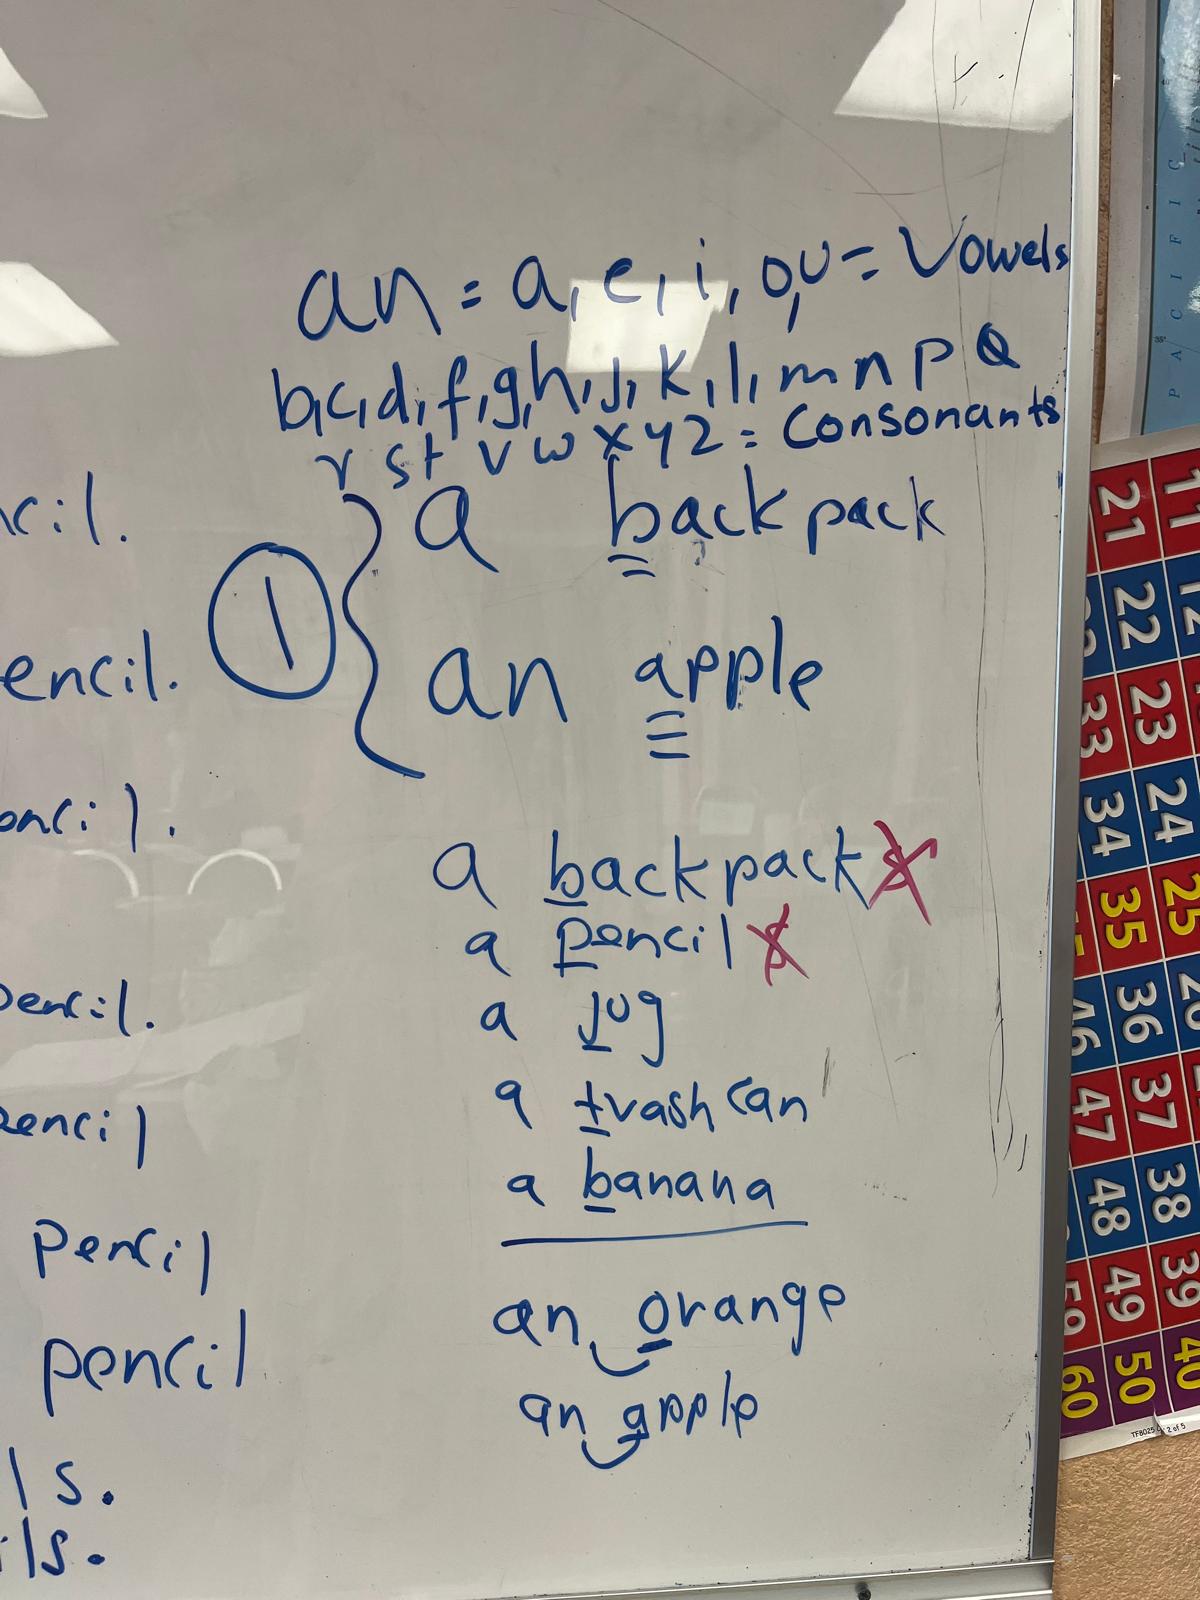 an = a, e, i, o, u = Vowels
b, c, d, f, g, h, j, k, l, m n p Q
r s t v w x y z = Consonants
a backpack
1
an apple
a backpack
a pencil
a jug
a trash can
a banana
an orange
an apple
ncil.
encil.
encil.
pencil.
pencil
pencil
pencil
ls.
ils.
PACIFIC
21
22 12
33 23
34 24
35 25
46 36 26
47 37
48 38
59 49 39
60 50 40
TF8025 2 of 5